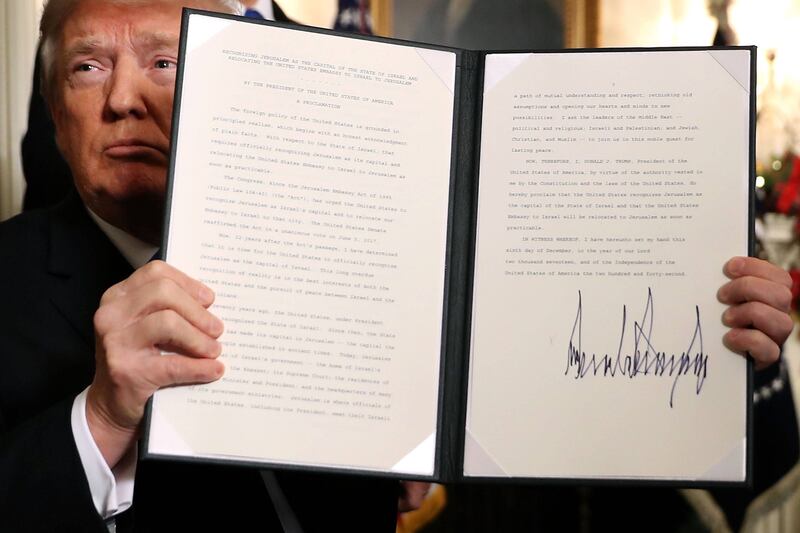 RECOGNIZING JERUSALEM AS THE CAPITAL OF THE STATE OF ISRAEL AND
RELOCATING THE UNITED STATES EMBASSY TO ISRAEL TO JERUSALEM
BY THE PRESIDENT OF THE UNITED STATES OF AMERICA
A PROCLAMATION
The foreign policy of the United States is grounded in
principled realism, which begins with an honest acknowledgment
of plain facts. With respect to the State of Israel, that
requires officially recognizing Jerusalem as its capital and
relocating the United States Embassy to Israel to Jerusalem as
soon as practicable.
The Congress, since the Jerusalem Embassy Act of 1995
(Public Law 104-45) (the "Act"), has urged the United States to
recognize Jerusalem as Israel's capital and to relocate our
Embassy to Israel to that city. The United States Senate
reaffirmed the Act in a unanimous vote on June 5, 2017.
Now, 22 years after the Act's passage, I have determined
that it is time for the United States to officially recognize
Jerusalem as the capital of Israel. This long overdue
recognition of reality is in the best interests of both the
United States and the pursuit of peace between Israel and the
years ago, the United States, under President
recognized the State of Israel. Since then, the State
has made its capital in Jerusalem -- the capital the
people established in ancient times. Today, Jerusalem
of Israel's government -- the home of Israel's
the Knesset; its Supreme Court; the residences of
Minister and President; and the headquarters of many
of its government ministries. Jerusalem is where officials of
the United States, including the President, meet their Israeli
a path of mutual understanding and respect, rethinking old
assumptions and opening our hearts and minds to new
possibilities. I ask the leaders of the Middle East --
political and religious; Israeli and Palestinian; and Jewish,
Christian, and Muslim -- to join us in this noble quest for
lasting peace.
NOW, THEREFORE, I, DONALD J. TRUMP, President of the
United States of America, by virtue of the authority vested in
me by the Constitution and the laws of the United States, do
hereby proclaim that the United States recognizes Jerusalem as
the capital of the State of Israel and that the United States
Embassy to Israel will be relocated to Jerusalem as soon as
practicable.
IN WITNESS WHEREOF, I have hereunto set my hand this
sixth day of December, in the year of our Lord
two thousand seventeen, and of the Independence of the
United States of America the two hundred and forty-second.